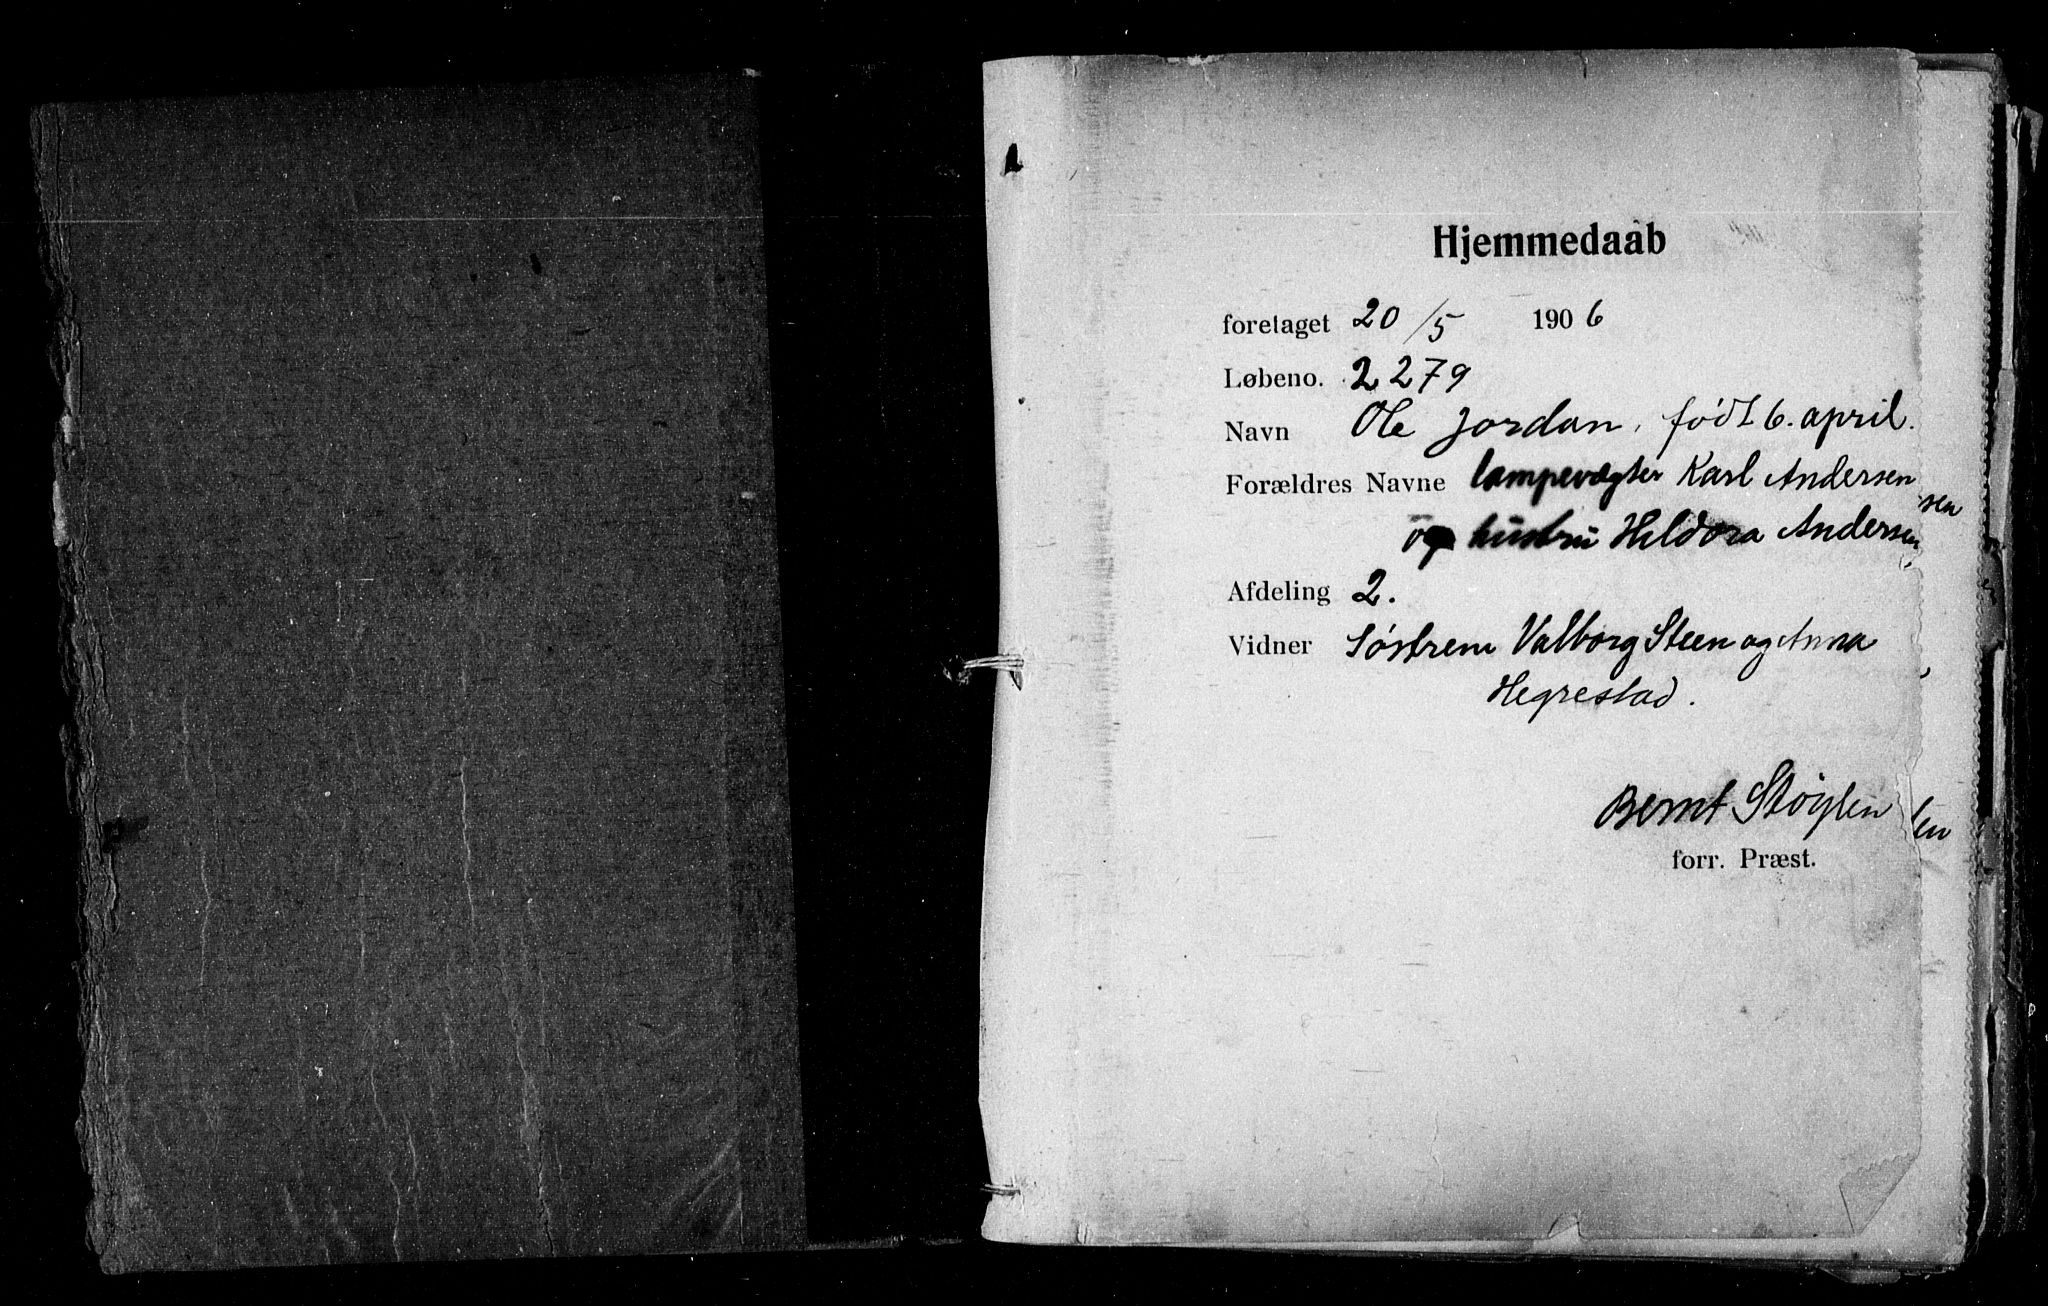 Hjemmedaab
foretaget 20/5 1906
Løbeno. 2279
Navn Ole Jordan, født 6. april.
Forældres Navne lampevægter Karl Andersen
sen
og hustru Heldora Andersen,
Afdeling 2.
Vidner Søstrene Valborg Steen og Anna
Hegrestad.
Bernt Støylen
en
forr. Præst.